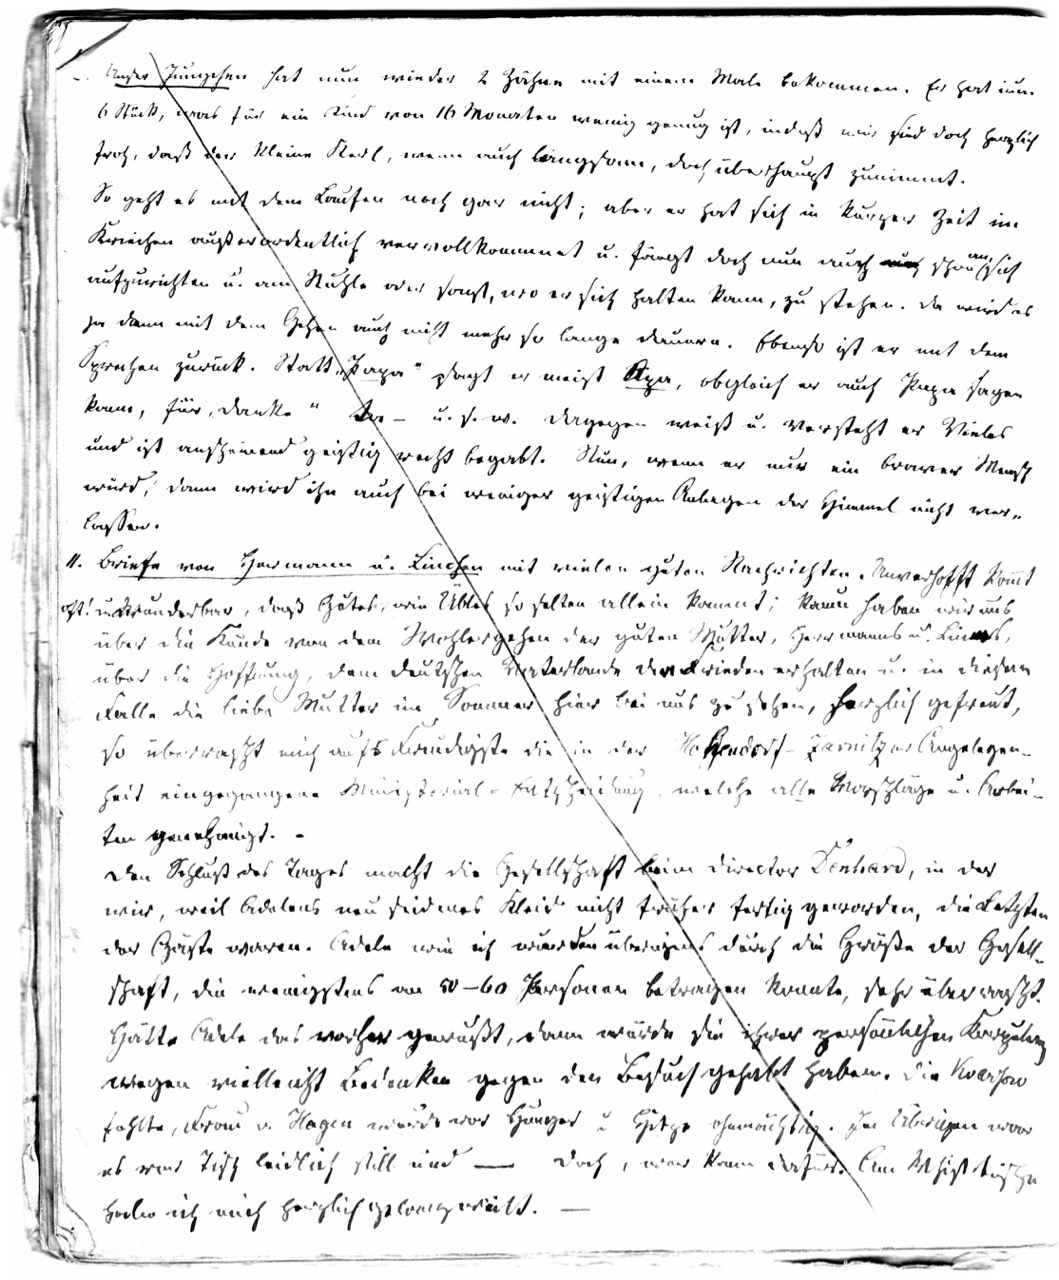 Unser Jungchen hat nun wieder 2 Zähne mit einem Male bekommen. Er hat nun
6 Stück, was für ein Kind von 16 Monaten wenig genug ist, indeß wir sind doch herzlich
froh, daß der kleine Kerl, wenn auch langsam, doch überhaupt zunimmt.
So geht es mit dem Laufen noch gar nicht; aber er hat sich in kurzer Zeit im
Kriechen außerordentlich vervollkommnet u. fängt doch nun auch schon an, sich
aufzurichten u. am Stuhle oder sonst, wo er sich halten kann, zu stehen. Da wird es
ja dann mit dem Gehen auch nicht mehr so lange dauern. Ebenso ist er mit dem
Sprechen zurück. Statt „Papa“ sagt er meist Apa, obgleich er auch Papa sagen
kann, für „danke“ – u. s. w. Dagegen weiß u. versteht er Vieles
und ist anscheinend geistig recht begabt. Nun, wenn er nur ein braver Mensch
wird, dann wird ihn auch bei weniger geistigen Anlagen der Himmel nicht ver-
lassen.
11. Briefe von Hermann u. Linchen mit vielen guten Nachrichten. Unverhofft komt
oft! u. Wunderbar, daß Gutes, wie Übles so selten allein kommt; kaum haben wir uns
über die Kunde von dem Wohlergehen der guten Mutter, Hermanns u. Linchens,
über die Hoffnung, dem deutschen Vaterlande den Frieden erhalten u. in diesem
Falle die liebe Mutter im Sommer hier bei uns zu sehen, herzlich gefreut,
so überrascht mich aufs Freudigste die in der Angelegen-
heit eingegangene Ministerial-Entscheidung, welche alle Vorschläge u. Arbei-
ten genehmigt. –
Den Schluß des Tages macht die Gesellschaft beim Director Denhard, in der
wir, weil Adelens neu seidenes Kleid nicht früher fertig geworden, die Letzten
der Gäste waren. Adele wie ich wurden übrigens durch die Größe der Gesell-
schaft, die wenigstens an 50–60 Personen betragen konnte, sehr überrascht.
Hätte Adele das vorher gewußt, dann würde sie ihrer persönlichen Korpulenz
wegen vielleicht Bedenken gegen den Besuch gehabt haben. Die
fehlte, Frau v. Hagen wurde vor Hunger u Hitze ohnmächtig. Im Übrigen war
es vor Tisch leidlich still und — doch, wer kann dafür. Am Whisttische
habe ich mich herzlich gelangweilt. —